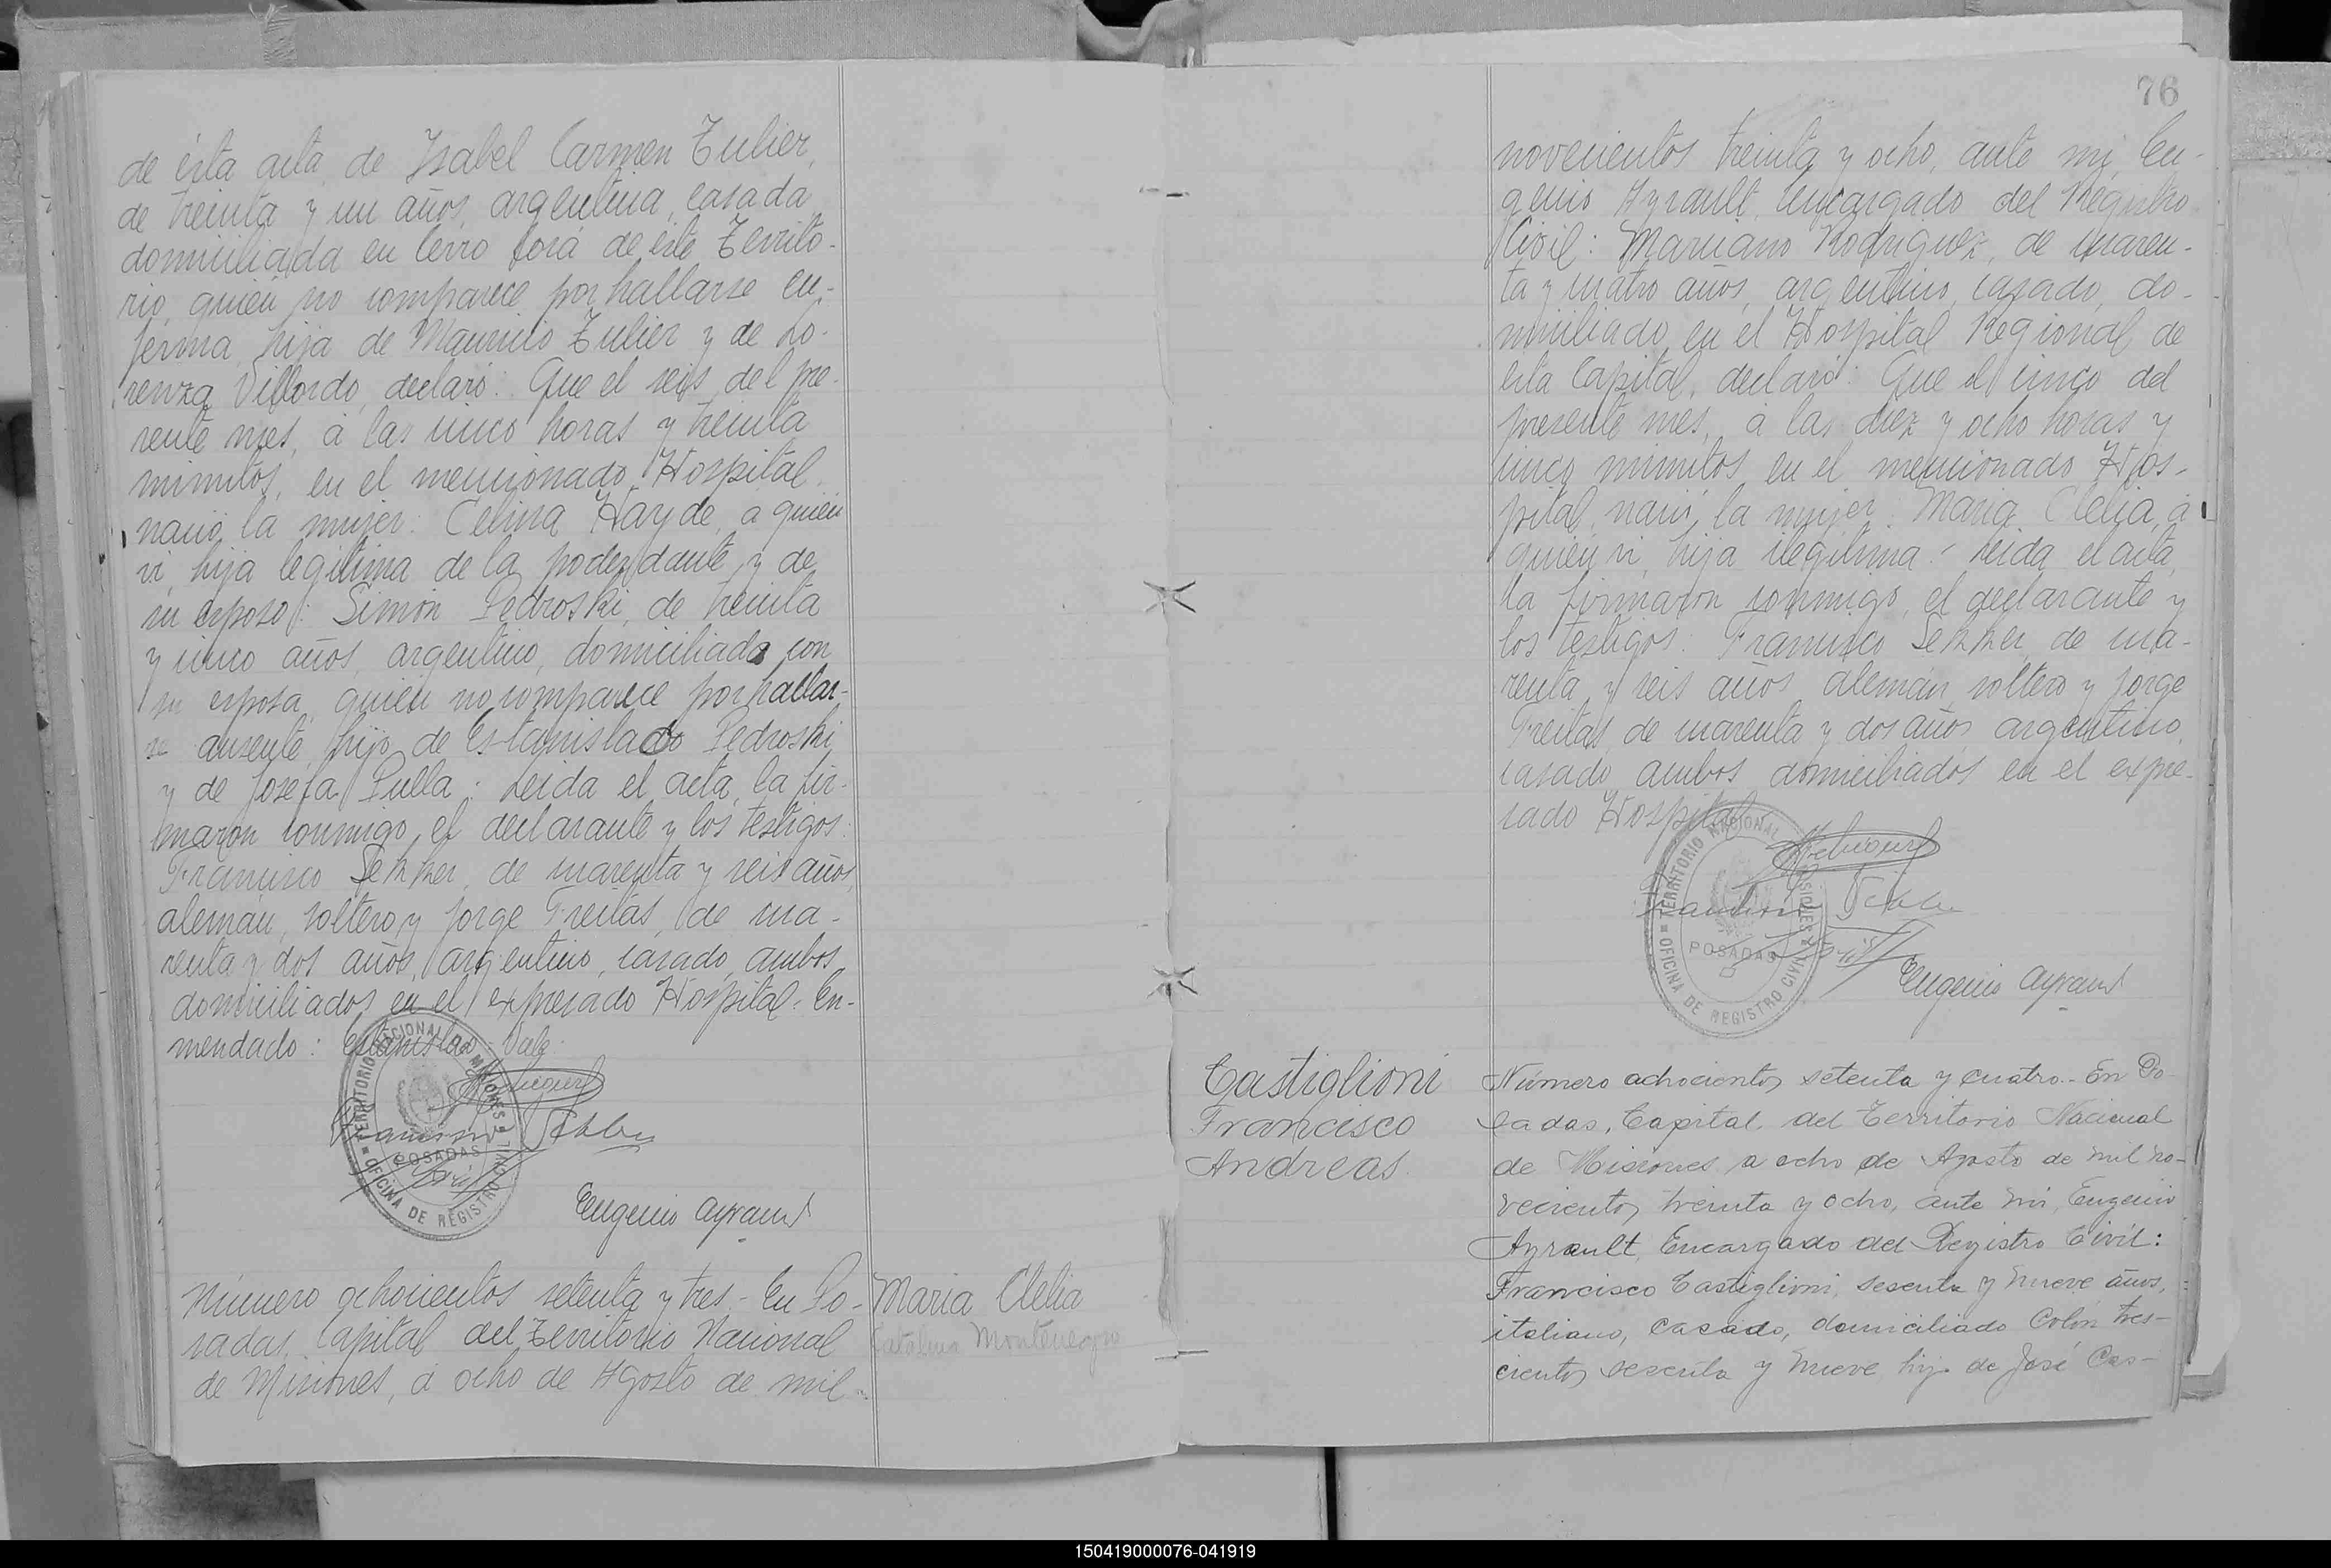 de ésta acta, de Isabel Carmen Tulier,
de treinta y un años, argentina, casada
domiciliada en Cerro Corá de éste Territo-
rio, quién no comparece por hallarse en-
ferma, hija de Mauricio Tulier y de Lo-
renza Villordo, declaró: Que el seis del pre-
sente mes, á las cinco horas y treinta
minutos, en el mencionado Hospital
nació la mujer: Celina Hayde, a quién
ví, hija legítima de la poderdante y de
su esposo: Simón Pedroski, de treinta
y cinco años, argentino, domiciliado con
su esposa, quién no comparece por hallar-
se ausente, hijo de Estanislado Pedroski
y de Josefa Pulla; Leida el acta, la fir-
maron conmigo, el declarante y los testigos:
Francisco Sekker, de cuarenta y seis años,
alemán, soltero y Jorge Freitas, de cua-
renta y dos años, argentino, casado, ambos
domiciliados en el expresado Hospital. En-
mendado: Estanislado - Vale
TERRITORIO NACIONAL DE MISIONES
POSADAS
OFICINA DE REGISTRO CIVIL
Eugenio Ayrault
Número ochocientos setenta y tres - En Po-
sadas, Capital del Territorio Nacional
de Misiones, á ocho de Agosto de mil
Maria Clelia
Catalina Montenegro
76
novecientos treinta y ocho, ante mi, Eu-
genio Ayrault, Encargado del Registro
Civil: Marciano Rodriguez, de cuaren-
ta y cuatro años, argentino, casado, do-
miciliado en el Hospital Regional de
esta Capital, declaró: Que el cinco del
presente mes, á las diez y ocho horas y
cinco minutos en el mencionado Hos-
pital, nació la mujer: Maria Clelia, á
quién ví, hija ilegítima. Leida el acta,
la firmaron conmigo, el declarante y
los testigos: Francisco Sekker, de cua-
renta y seis años, alemán, soltero y Jorge
Freitas, de cuarenta y dos años, argentino,
casado, ambos domiciliados en el expre-
sado Hospital
TERRITORIO NACIONAL DE MISIONES
POSADAS
OFICINA DE REGISTRO CIVIL
Eugenio Ayrault
Castiglioni
Francisco
Andreas.
Número ochocientos setenta y cuatro.- En Po-
sadas, Capital del Territorio Nacional
de Misiones a ocho de Agosto de mil no-
vecientos treinta y ocho, ante mi, Eugenio
Ayrault, Encargado del Registro Civil:
Francisco Castiglioni, sesenta y nueve años,
italiano, casado, domiciliado Colón tres-
cientos sesenta y nueve hijo de José Cas-
150419000076-041919